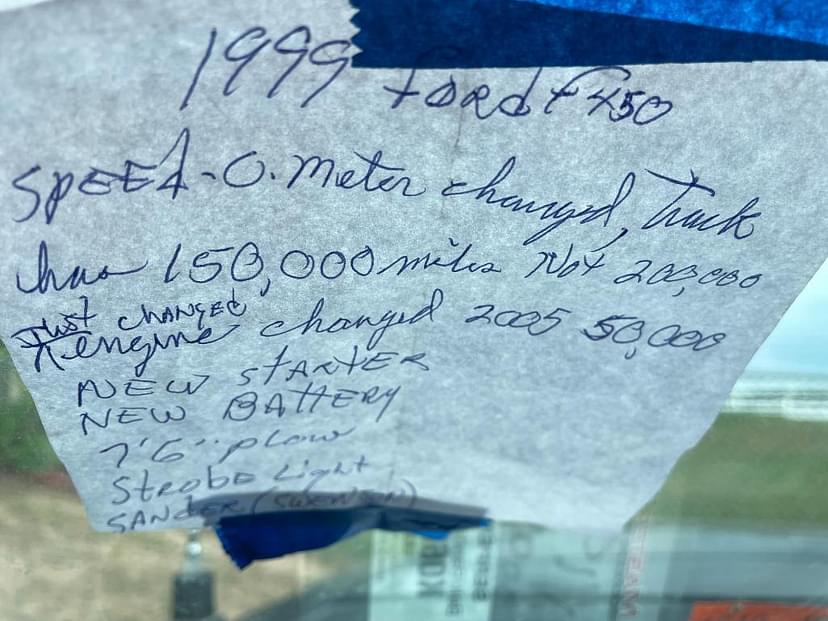 1999 Ford F450
SPEEd-O. Meter changed, Truck
has 150,000 miles Not 200,000
Just CHANGED
engine changed 2005 50,000
NEW STARTER
NEW BATTERY
7'6" plow
Strobe Light
SANDER (SWENSON)